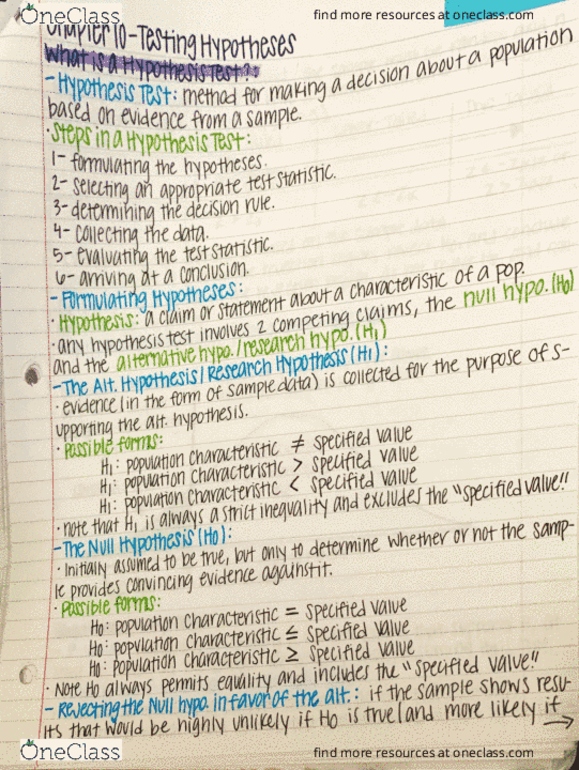 OneClass find more resources at oneclass.com
Chapter 10-Testing Hypotheses
What is a Hypothesis Test?:
-Hypothesis Test: method for making a decision about a population
based on evidence from a sample.
·Steps in a Hypothesis Test:
1- formulating the hypotheses.
2- selecting an appropriate test statistic.
3- determining the decision rule.
4- collecting the data.
5- evaluating the test statistic.
6- arriving at a conclusion.
-Formulating Hypotheses:
·Hypothesis: a claim or statement about a characteristic of a pop.
·any hypothesis test involves 2 competing claims, the null hypo.(H0)
and the alternative hypo./research hypo.(H1)
-The Alt. Hypothesis/Research Hypothesis (H1):
·evidence (in the form of sample data) is collected for the purpose of s-
upporting the alt. hypothesis.
·Possible forms:
H1: population characteristic ≠ specified value
H1: population characteristic > specified value
H1: population characteristic < specified value
·note that H1 is always a strict inequality and excludes the "specified value!!
-The Null Hypothesis (H0):
·Initially assumed to be true, but only to determine whether or not the samp-
le provides convincing evidence against it.
·Possible forms:
H0: population characteristic = specified value
H0: population characteristic ≤ specified value
H0: population characteristic ≥ specified value
·Note H0 always permits equality and includes the "specified value!!
-Rejecting the Null hypo. in favor of the alt.: if the sample shows resu-
lts that would be highly unlikely if H0 is true (and more likely if →
OneClass find more resources at oneclass.com